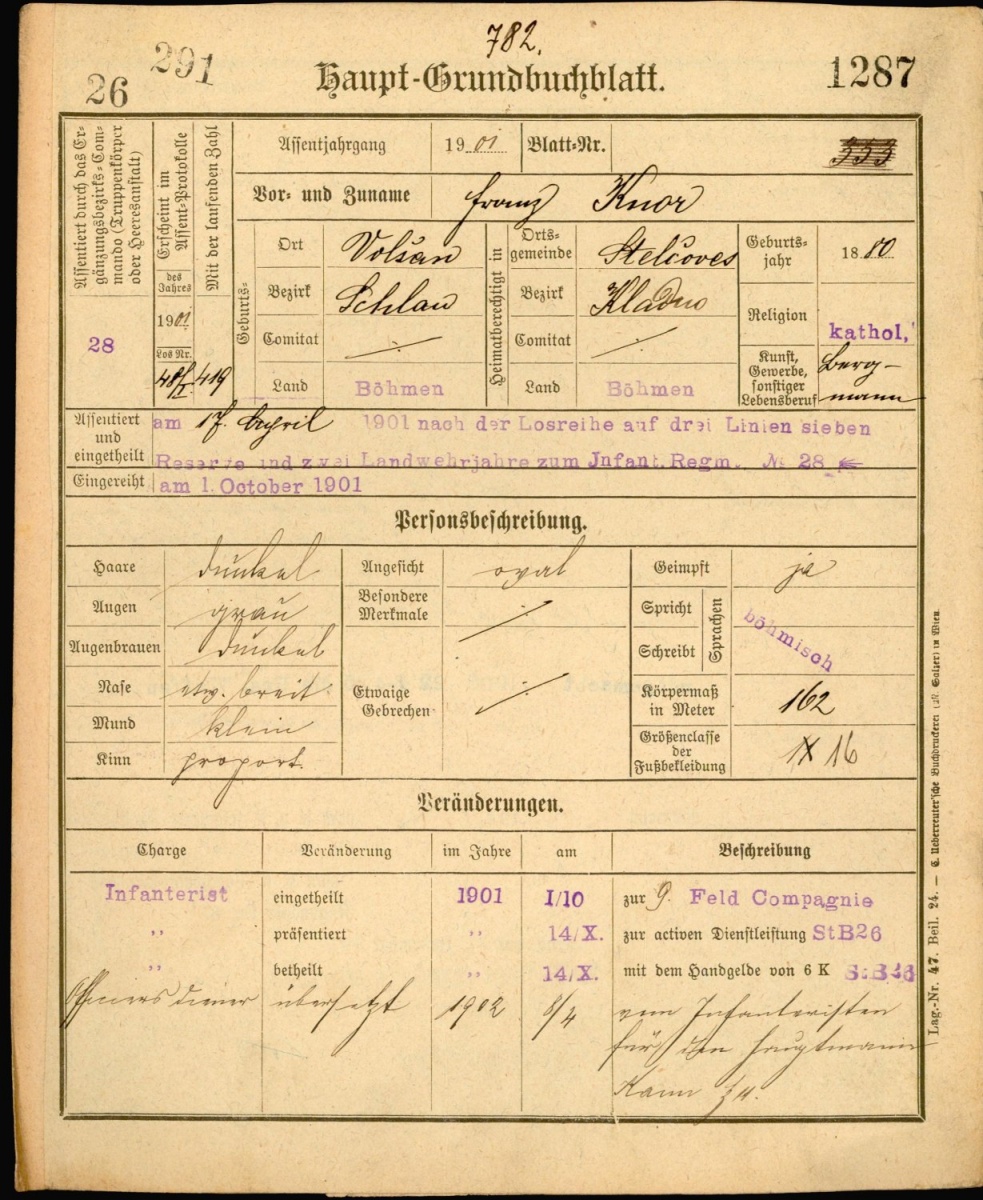 782.
26 291 Haupt-Grundbuchblatt. 1287
Assentiert durch das Ergänzungsbezirks-Commando (Truppenkörper oder Heeresanstalt)
28
Erscheint im Assent-Protokolle
des Jahres
1901
Los Nr.
Mit der laufenden Zahl
419
Assentjahrgang 1901 Blatt-Nr. 353
Vor- und Zuname Franz Knor
Geburts-
Ort Volšan
Bezirk Schlan
Comitat ·/·
Land Böhmen
Heimatberechtigt in
Ortsgemeinde Stelčoves
Bezirk Kladno
Comitat ·/·
Land Böhmen
Geburtsjahr 1880
Religion kathol,
Kunst, Gewerbe, sonstiger Lebensberuf Bergmann
Assentiert und eingetheilt
am 17. April 1901 nach der Losreihe auf drei Linien sieben
Reserve und zwei Landwehrjahre zum Infant. Regm. № 28
Eingereiht am 1. October 1901
Personsbeschreibung.
Haare dunkel Angesicht oval Geimpft ja
Augen grau Besondere Merkmale ·/· Spricht Sprachen böhmisch
Augenbrauen dunkel Schreibt
Nase etw. breit Etwaige Gebrechen ·/· Körpermaß in Meter 162
Mund klein Größenclasse der Fußbekleidung 16
Kinn proport.
Veränderungen.
Charge Veränderung im Jahre am Beschreibung
Infanterist eingetheilt 1901 1/10 zur 9. Feld Compagnie
,, präsentiert ,, 14/X. zur activen Dienstleistung StB26
,, betheilt ,, 14/X. mit dem Handgelde von 6 K StB26
Offiziersdiener übersetzt 1902 8/4 vom Infanteristen
für den Hauptmann
Lag.-Nr. 47. Beil. 24. — C. Ueberreuter'sche Buchdruckerei (M. Salzer) in Wien.